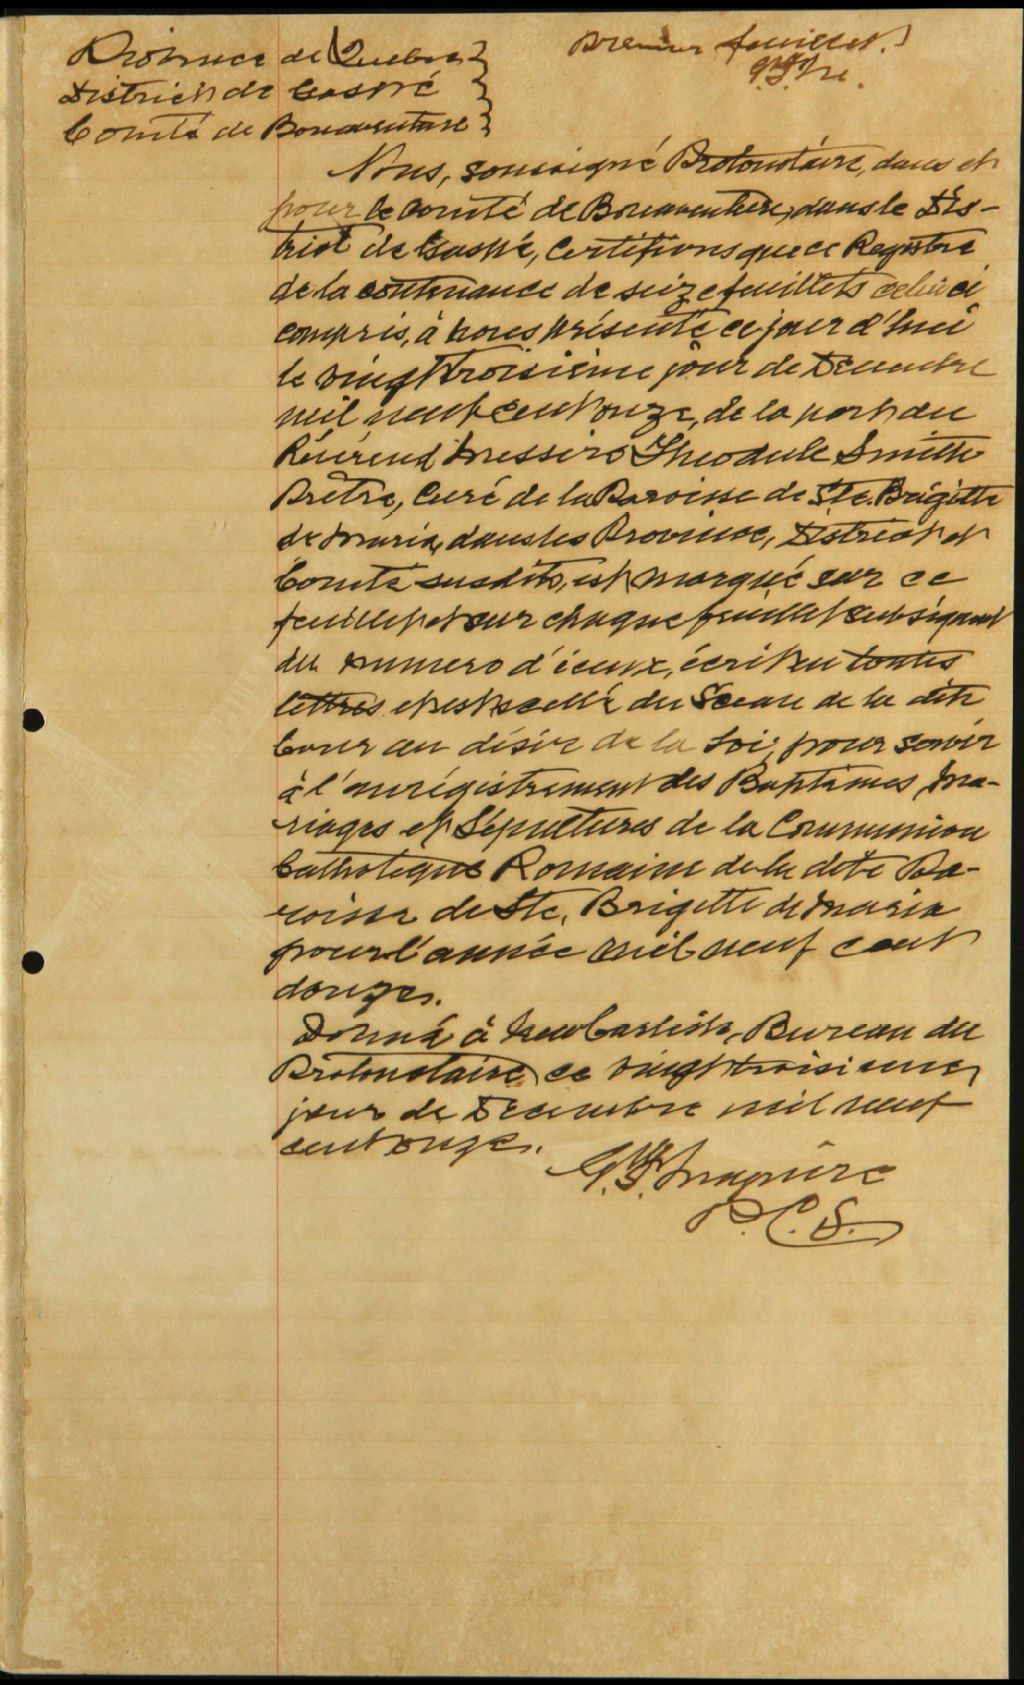 Province de Québec
District de Gaspé
Comté de Bonaventure
Premier feuillet.
Nous, soussigné Protonotaire, dans et
pour le comté de Bonaventure, dans le Dis-
trict de Gaspé, Certifions que ce Registre
de la contenance de seize feuillets celui ci
compris, à nous présenté ce jour d'hui
le vingt troisième jour de Décembre
mil neuf cent onze, de la part du
Révérend Messire Theodule Smith
Prêtre, Curé de la Paroisse de Ste. Brigitte
de Maria, dans les Province, District et
Comté susdits, est marqué sur ce
feuillet et sur chaque feuillet subséquent
du numero d'iceux, écrit en toutes
lettres et est scellé du Sceau de la dite
Cour au désir de la Loi, pour servir
à l'enrégistrement des Baptêmes, Ma-
riages et Sépultures de la Communion
Catholique Romaine de la dite Pa-
roisse de Ste. Brigitte de Maria
pour l'année mil neuf cent
douze.
Donné à New Carlisle, Bureau du
Protonotaire, ce vingt troisieme
jour de Décembre mil neuf
cent onze.
P. C. S.